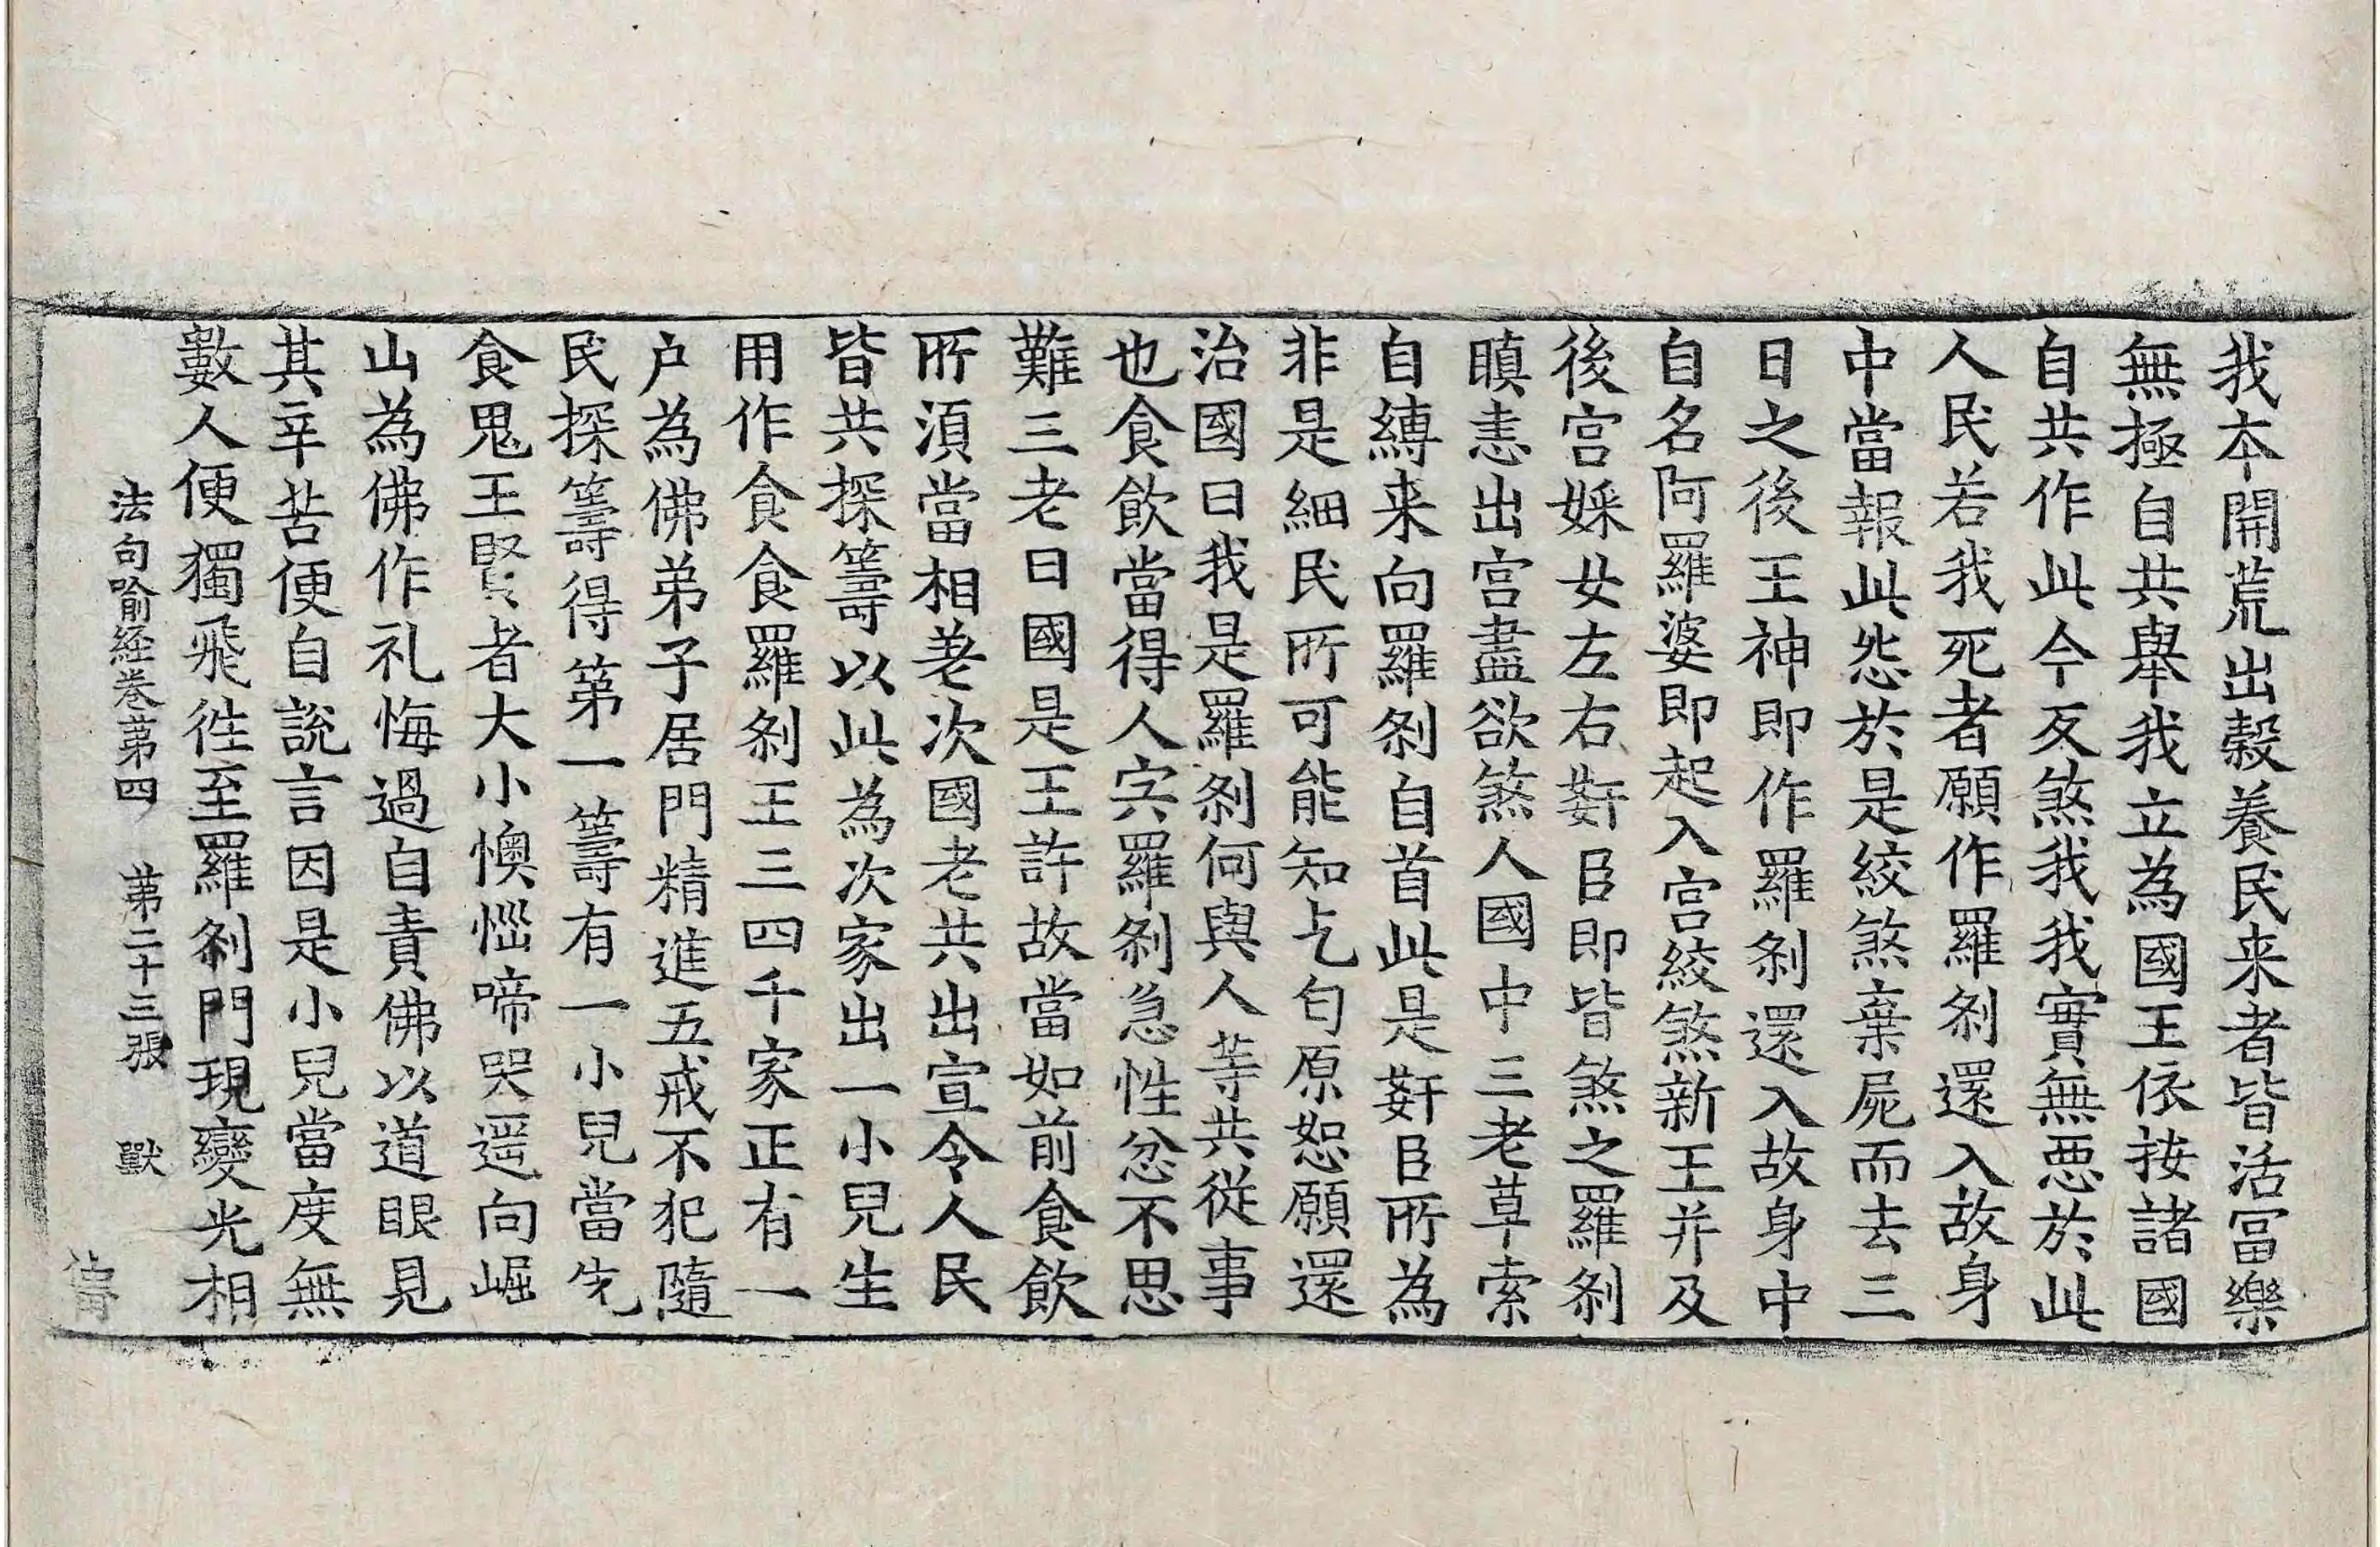 我本開荒出穀養民来者皆活冨樂
無極自共舉我立為國王依按諸國
自共作此今反煞我我實無惡於此
人民若我死者願作羅剎還入故身
中當報此怨於是絞煞棄屍而去三
日之後王神即作羅剎還入故身中
自名阿羅婆即起入宮絞煞新王并及
後宮婇女左右姧臣即皆煞之羅剎
瞋恚出宮盡欲煞人國中三老草索
自縛来向羅剎自首此是姧臣所為
非是細民所可能知乞匄原恕願還
治國曰我是羅剎何與人等共從事
也食飲當得人宍羅剎急性忿不思
難三老曰國是王許故當如前食飲
所湏當相差次國老共出宣令人民
皆共探籌以此為次家出一小兒生
用作食食羅剎王三四千家正有一
户為佛弟子居門精進五戒不犯隨
民探籌得第一籌有一小兒當先
食鬼王賢者大小懊惱啼哭遥向崛
山為佛作礼悔過自責佛以道眼見
其辛苦便自說言因是小兒當度無
數人便獨飛往至羅剎門現變光相
法句喻經卷第四 第二十三張 獸